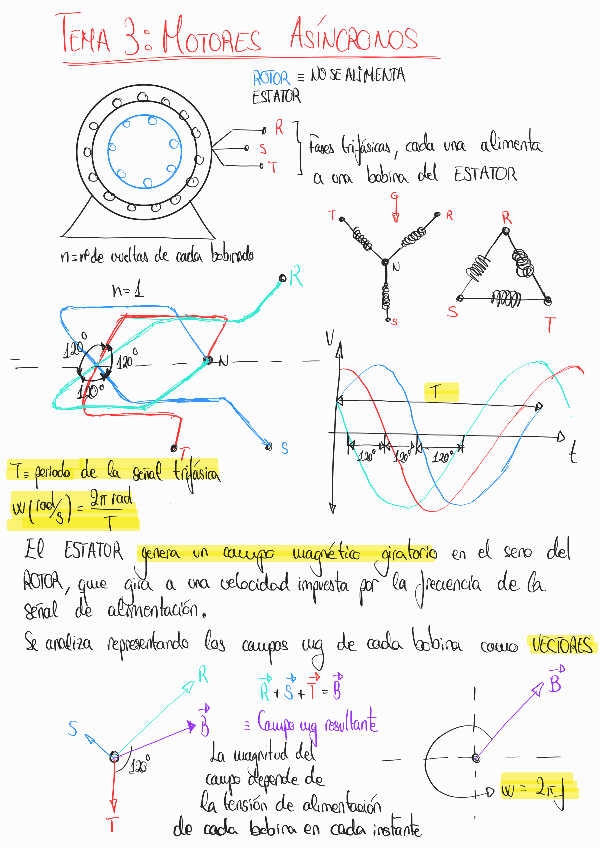 TEMA 3: MOTORES ASÍNCRONOS
ROTOR ≡ NO SE ALIMENTA
ESTATOR
R
S
T
Fases trifásicas, cada una alimenta
a una bobina del ESTATOR
n = nº de vueltas de cada bobinado
G
T
R
N
S
R
S
T
n=1
R
120º
120º
120º
N
T
S
V
T
120º
120º
120º
t
T ≡ periodo de la señal trifásica
w (rad/s) = 2π rad / T
El ESTATOR genera un campo magnético giratorio en el seno del
ROTOR, que gira a una velocidad impuesta por la frecuencia de la
señal de alimentación.
Se analiza representando los campos mg de cada bobina como VECTORES
R
S
B
120º
T
R + S + T = B
≡ Campo mg resultante
La magnitud del
campo depende de
la tensión de alimentación
de cada bobina en cada instante
B
w = 2πf